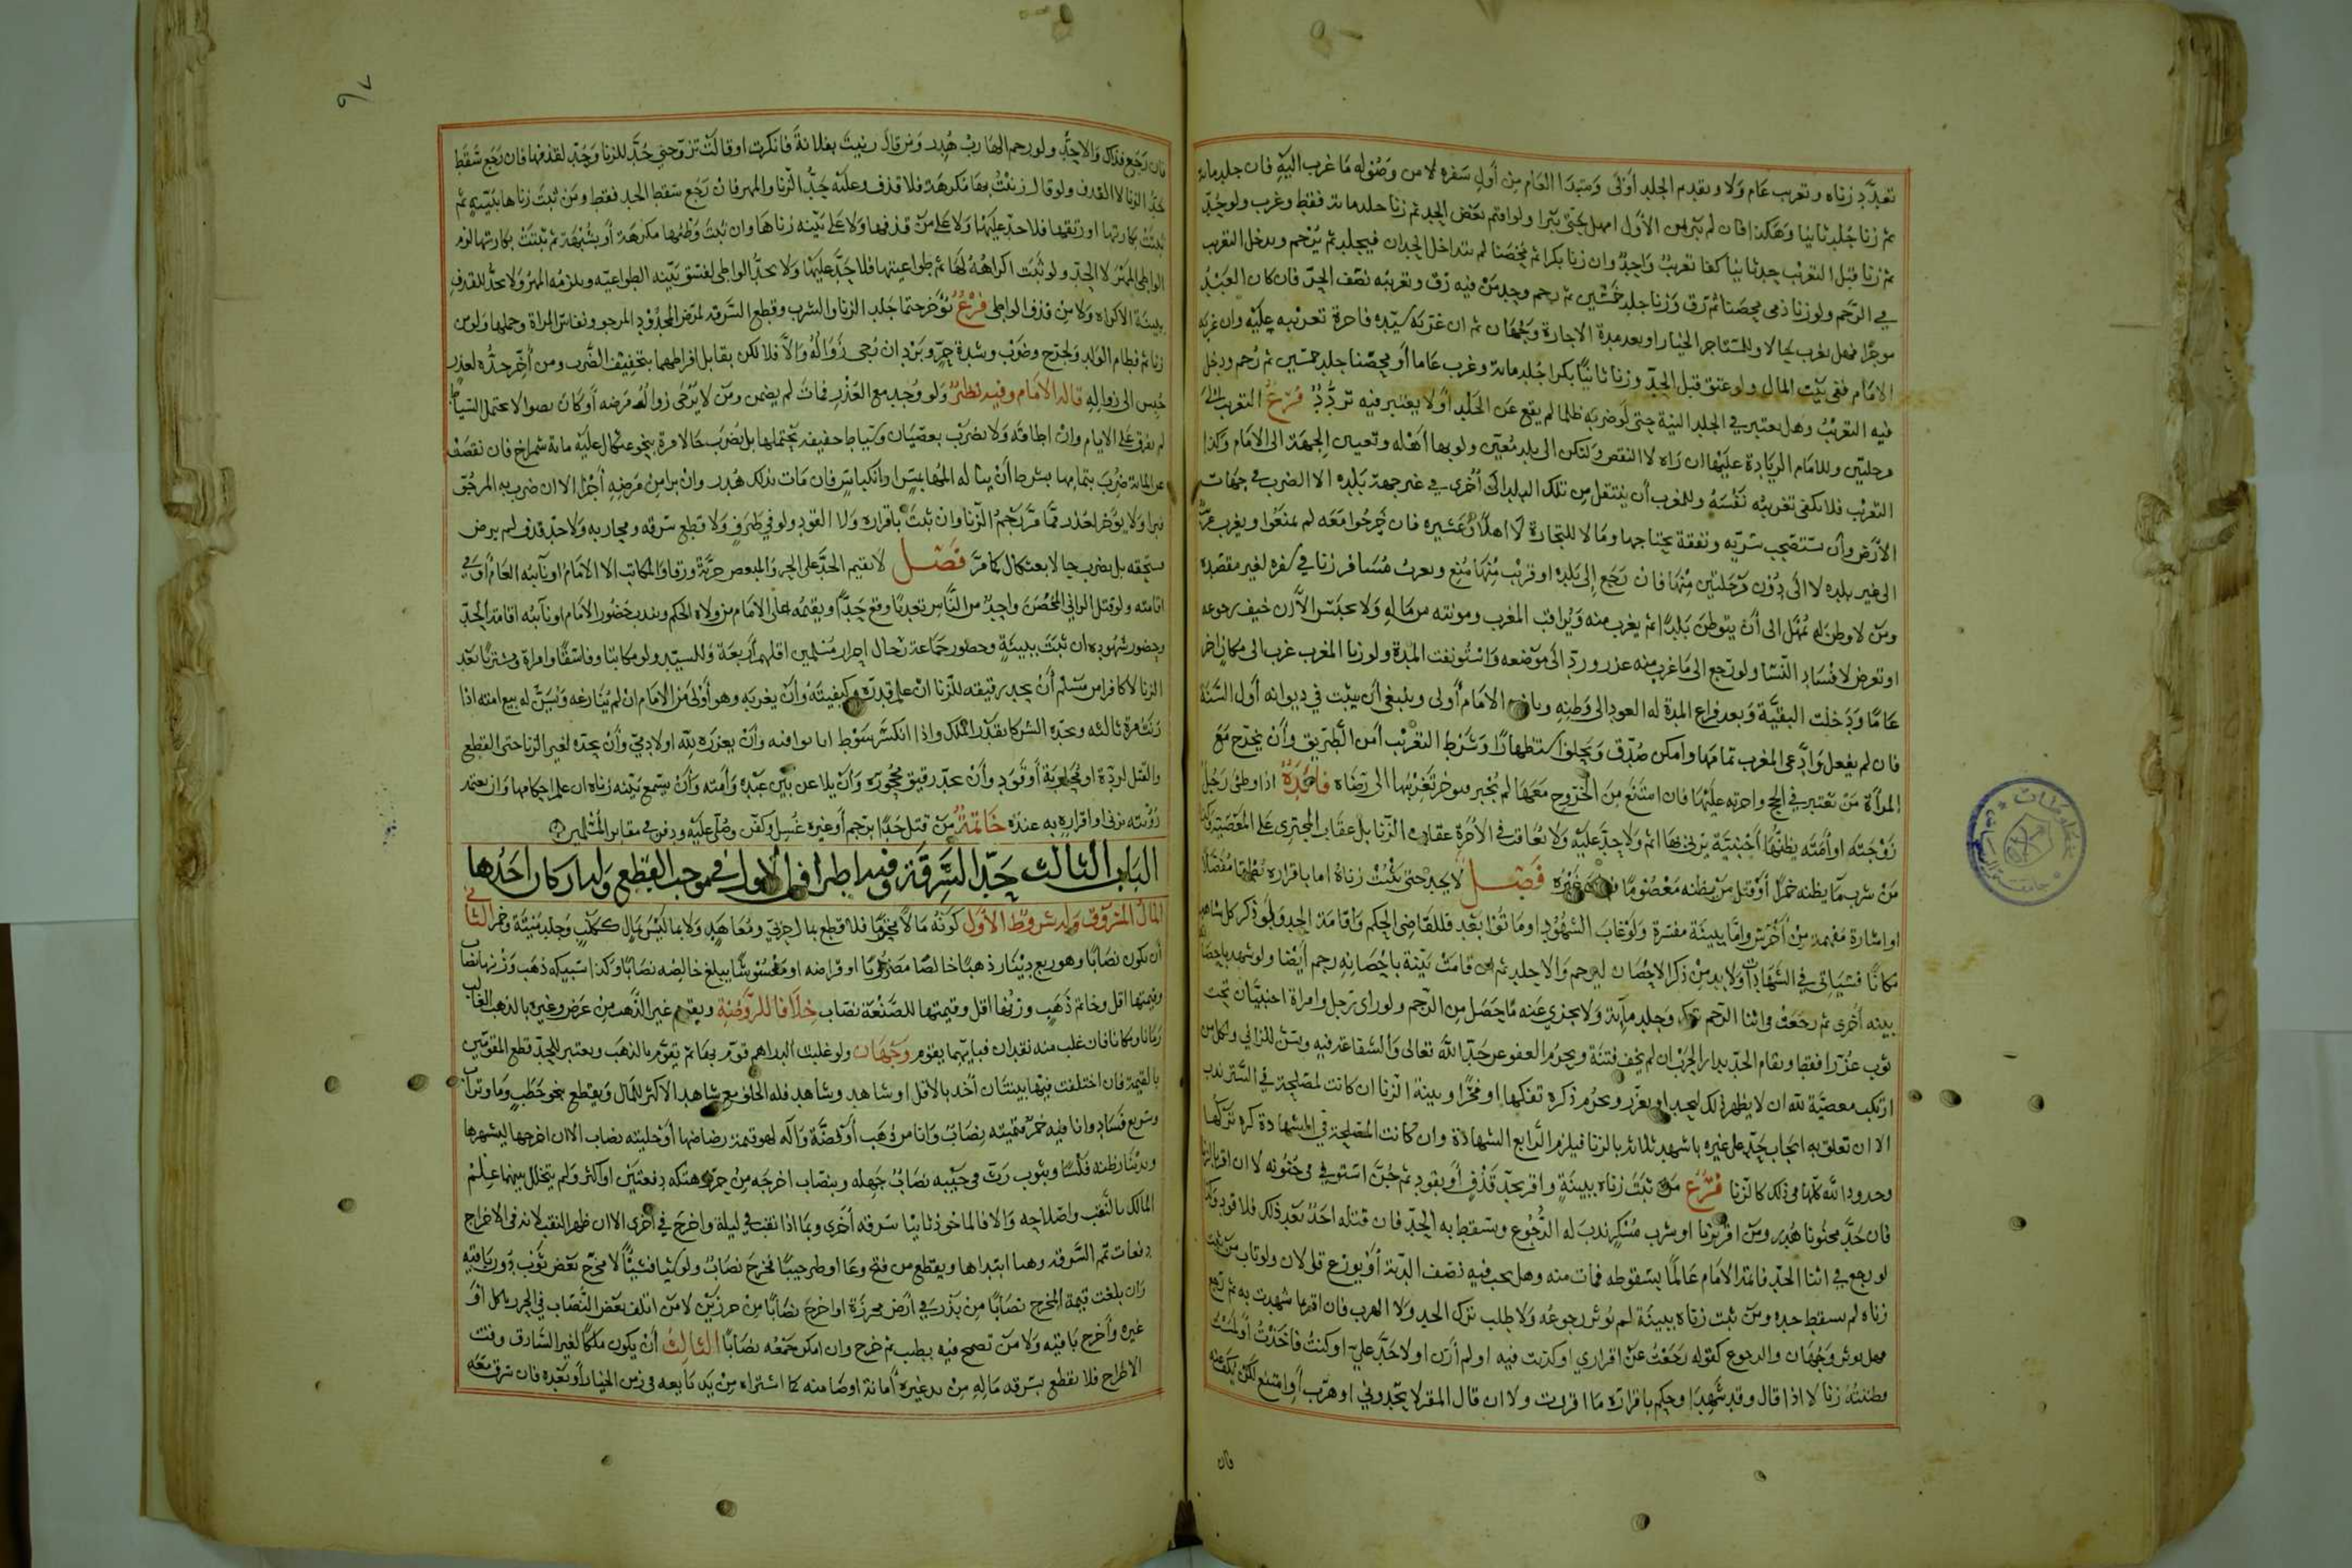 تعدد زناه وتغريب عام ولاء وتقديم الجلد أولى ومبتدا العام من أول سفره لا من وصوله ما غرب اليه فان جلد مائة
ثم زنا جلد ثانيا وهكذا فان لم يبرا من الأول امهل حتى يبرا ولو اقيم بعض الحد ثم زنا جلد مائة فقط وغرب ولو حد
ثم زنا قبل التغريب حد ثانيا كفا تغريب واحد وان زنا بكرا ثم محصنا لم يتداخل الحدان فيجلد ثم يرجم ويدخل التغريب
في الرجم ولو زنا ذمي محصنا ثم رق وزنا جلد خمسين ثم رجم وحد من فيه رق وتغريبه نصف الحر فان كان العبد
موجرا فهل يغرب حالا وللمستاجر الخيار او بعد مدة الاجارة وجهان ثم ان غربه سيده فاجرة تغريبه عليه وان غربه
الامام ففي بيت المال ولو عتق قبل الحد وزنا ثانيا بكرا جلد مائة وغرب عاما أو محصنا جلد خمسين ثم رجم ودخل
فيه التغريب وهل يعتبر في الجلد النية حتى لو ضربه ظلما لم يقع عن الجلد أو لا يعتبر فيه تردد فرع التغريب
مرحلتين وللامام الزيادة عليهما ان راه لا النقص ولتكن الى بلد معين ولو بها أهله وتعيين الجهة الى الامام وكذا
التغريب فلا يكفي تغريبه نفسه وللمغرب أن ينتقل من تلك البلد الى أخرى في غير جهة بلده الا الضرب في جهات
الأرض وأن يستصحب سريه ونفقة يحتاجها ومالا للتجارة لا اهلا وعشيره فان خرجوا معه لم يمنعوا ويغرب
الى غير بلده لا الى دون مرحلتين منها فان رجع إلى بلده او قريب منها منع ويغرب مسافر زنا في سفره لغير مقصده
ومن لا وطن له يمهل الى أن يتوطن بلدا ثم يغرب منه ويراقب المغرب ومونته من ماله ولا يحبس الا ان خيف رجوعه
او تعرض لافساد النسا ولو رجع الى ما غرب منه عزر ورد الى موضعه واستونفت المدة ولو زنا المغرب غرب الى مكان اخر
عاما ودخلت البقية وبعد فراغ المدة له العود الى وطنه وباذن الامام أولى وينبغي أن يثبت في ديوانه أول السنة
فان لم يفعل وادعى المغرب تمامها وامكن صدق ويحلف استظهارا وشرط التغريب أمن الطريق وأن يخرج مع
المرأة من يعتبر في الحج واجرته عليها فان امتنع من الخروج معها لم يجبر فيوخر تغريبها الى رضاه فائدة اذا وطئ رجل
زوجته او أمته يظنها أجنبية يزني بها اثم ولا حد عليه ولا يعاقب في الاخرة عقاب الزنا بل عقاب المجترى على المعصية وكذا
من شرب ما يظنه خمرا أو قتل من يظنه معصوما فبان غيره فصل لا يحد حتى يثبت زناه اما باقراره نطقا مفصلا
او اشارة مفهمة من أخرس واما ببينة مفسرة ولو غاب الشهود او ماتوا بعد فللقاضي الحكم واقامة الحد ولو ذكر كل شاهد
مكانا فسياتي في الشهادات ولا بد من ذكر الاحصان ليرجم والا جلد ثم ان قامت بينة باحصانه رجم أيضا ولو شهد باحصانه
بينة أخرى ثم رجعت في اثنا الرجم ترك وجلد مائة ولا يجزي عنه ما حصل من الرجم ولو راى رجل وامراة اجنبيان تحت
ثوب عزرا فقط ويقام الحد بدار الحرب ان لم يخف فتنة ويحرم العفو عن حد الله تعالى والشفاعة فيه ويسن للزاني ولكل من
ارتكب معصية لله ان لا يظهر ذلك ليحد او يعزر ويحرم ذكره تفكها او فخرا وبينة الزنا ان كانت لمصلحة في الستر ندب
الا ان تعلق به ايجاب حد على غيره بان شهد ثلاثة بالزنا فيلزم الرابع الشهادة وان كانت المصلحة في الشهادة كره تركها
وحدود الله كلها في ذلك كالزنا فرع من ثبت زناه ببينة واقر بحد قذف أو بقود ثم جن استوفي في جنونه لا ان اقر بالزنا
فان حد مجنونا هدر ومن اقر بزنا او شرب مسكر ندب له الرجوع ويسقط به الحد فان قتله احد بعد ذلك فلا قود وكذا
لو رجع في اثنا الحد فاتمه الامام عالما بسقوطه فمات منه وهل يجب فيه نصف الدية أو يوزع قولان ولو تاب من ثبت
زناه لم يسقط حده ومن ثبت زناه ببينة لم يوثر رجوعه ولا طلب ترك الحد ولا الهرب فان اقر بما شهدت به ثم رجع
فهل يوثر وجهان والرجوع كقوله رجعت عن اقراري او كذبت فيه او لم أزن او لا حد علي او كنت فاخذت أو لمست
وظننته زنا لا اذا قال وقد شهدا وحكم باقراره ما اقررت ولا ان قال المقر لا تحدوني او هرب او امتنع لكن يكف عنه
فان
٩٧
فان رجع فذاك والا حد ولو رجم الهارب هدر ومن قال زنيت بفلانة فانكرت او قالت تزوجني حد للزنا وحد لقذفها فان رجع سقط
حد الزنا لا القذف ولو قال زنيت بها مكرهة فلا قذف وعليه حد الزنا والمهر فان رجع سقط الحد فقط ومن ثبت زناها ببينة ثم
ثبتت بكارتها او رتقها فلا حد عليها ولا على من قذفها ولا على بينة زناها وان ثبت وطئها مكرهة أو بشبهة ثم ثبتت بكارتها لزم
الواطي المهر لا الحد ولو ثبت اكراهه لها ثم طواعيتها فلا حد عليها ولا يحد الواطي لفسق بينة الطواعية ويلزمه المهر ولا تحد للقذف
بينة الاكراه ولا من قذف الواطي فرع يؤخر حتما جلد الزنا والشرب وقطع السرقة لمرض المحدود المرجو ونفاس المراة وحملها ولو من
زنا ثم فطام الولد ولجرح وضرب وشدة حر وبرد ان رجي زواله والا فلا لكن يقابل افراطهما بتخفيف الضرب ومن أخر حده لعذر
حبس الى زواله قاله الامام وفيه نظر ولو وجد مع العذر فمات لم يضمن ومن لا يرجى زوال مرضه أو كان نضوا لا يحتمل السياط
لم يفرق على الايام وان اطاقه ولا يضرب بعصيان وسياط خفيفة يحتملها بل يضرب حالا مرة بنحو عثكال عليه مائة شمراخ فان نقص
عن المائة ضرب بتمامها بشرط أن يناله المها بمس او انكباس فان مات بذلك هدر وان برا من مرضه أجزا الا ان ضرب به المرجو
فبرا ولا يؤخر لعذر مما مر رجم الزنا وان ثبت باقراره ولا القود ولو في طرف ولا قطع سرقه ومحاربه ولا حد قذف لم يرض
مستحقه بل يضرب حالا بعثكال كما مر فصل لا يقيم الحد على الحر والمبعض حرية ورقا والمكاتب الا الامام او نائبه العام أو في
اقامته ولو قتل الزاني المحصن واحد من الناس تعديا وقع حدا ويقيمه على الامام من ولاه الحكم ويندب حضور الامام او نائبه اقامة الحد
وحضور شهوده ان ثبت ببينة وحضور جماعة رجال احرار مسلمين اقلهم أربعة وللسيد ولو مكاتبا وفاسقا وامراة ومشتريا بعد
الزنا لا كافرا من مسلم أن يحد رقيقه للزنا ان علم قدره وكيفيته وأن يغربه وهو أولى من الامام ان لم ينازعه ويسن له بيع امته اذا
زنت مرة ثالثة ويحده الشركا بقدر الملك واذا انكسر سوط اما نوا فيه وأن يعزره لله او لادمي وأن يحده لغير الزنا حتى القطع
والقتل لردة او محاربة أو قود وأن يحد رقيق محجوره وأن يلاعن بين عبده وأمته وأن يسمع بينة زناه ان علم احكامها وأن يعتمد
رؤيته يزني او اقراره به عنده خاتمة من قتل حدا برجم أو غيره غسل وكفن وصلي عليه ودفن في مقابر المسلمين
الباب الثالث حد السرقة وفيه اطراف الاول في موجب القطع وله اركان احدها
المال المسروق وله شروط الأول كونه مالا محترما فلا قطع بمال حربي ومعاهد ولا بما ليس بمال ككلب وجلد ميتة وخمر الثاني
أن يكون نصابا وهو ربع دينار ذهبا خالصا مضروبا او قراضه او مغشوشا يبلغ خالصه نصابا وكذا سبيكه ذهب وزنها نصاب
وقيمتها اقل وخاتم ذهب وزنها اقل وقيمتها للصنعة نصاب خلافا للروضة ويقوم غير الذهب من عرض وغيره بالذهب الغالب
زمانا ومكانا فان غلب منه نقدان فبايهما يقوم وجهان ولو غلبت الدراهم قوم بها ثم تقوم بالذهب ويعتبر للحد قطع المقومين
بالقيمة فان اختلفت فيها بينتان أخذ بالاقل او شاهد وشاهد فله الحلف مع شاهد الاكثر للمال ويقطع بنحو حطب وما وتراب
وسريع فساد وانا فيه خمر قيمته نصاب وانا من ذهب أو فضة وآلة لهو قيمة رضاضها أو حليته نصاب الا ان اخرجها ليشهرها
وبدينار ظنه فلسا وبثوب رث في جيبه نصاب جهله وبنصاب اخرجه من حرز هتكه دفعتين او اكثر ولم يتخلل بينهما علم
المالك بالنقب واصلاحه والا فالماخوذ ثانيا سرقه أخرى وبما اذا نقب في ليلة واخرج في أخرى الا ان ظهر النقب لانه في الاخراج
دفعات تمم السرقة وهنا ابتداها ويقطع من فتح وعا او طر جيبا فخرج نصاب ولو شيا فشيئا لا مخرج بعض ثوب دون باقيه
وان بلغت قيمة المخرج نصابا من بذر في أرض محرزة او اخرج نصابا من حرزين لا من اتلف بعض النصاب في الحرز باكل او
غيره وأخرج باقيه ولا من تضمخ فيه بطيب ثم خرج وان امكن جمعه نصابا الثالث أن يكون ملكا لغير السارق وقت
الاخراج فلا يقطع بسرقة ماله من يد غيره أمانة او ضامنة كما اشتراه من يد بايعه في زمن الخيار أو بعده فان سرق معه